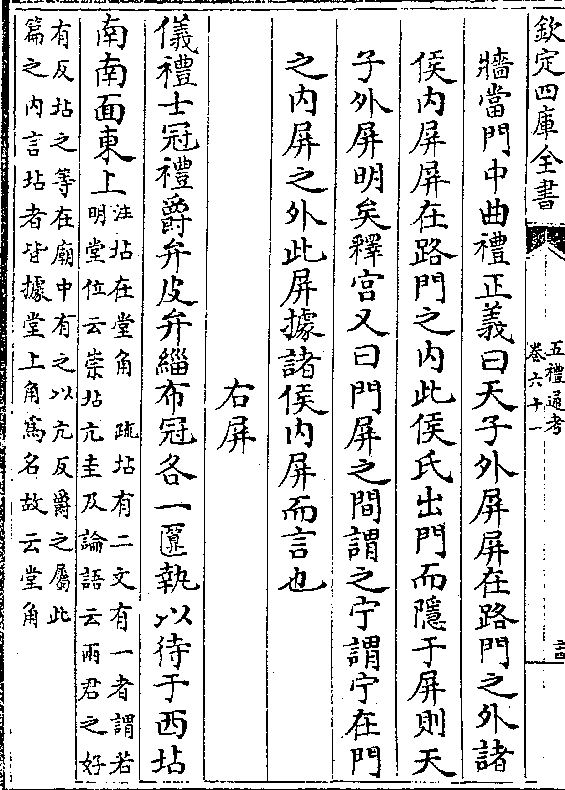 欽定四庫全書
五禮通考
卷六十一
牆當門中曲禮正義曰天子外屏屏在路門之外諸
侯内屏屏在路門之内此侯氏出門而隱于屏則天
子外屏明矣釋宫又曰門屏之間謂之宁謂宁在門
之内屏之外此屏據諸侯内屏而言也
右屏
儀禮士冠禮爵弁皮弁緇布冠各一匴執以待于西坫
南南面東上
注坫在堂角　疏坫有二文有一者謂若
明堂位云崇坫亢圭及論語云兩君之好
有反坫之等在廟中有之以亢反爵之屬此
篇之内言坫者皆據堂上角爲名故云堂角